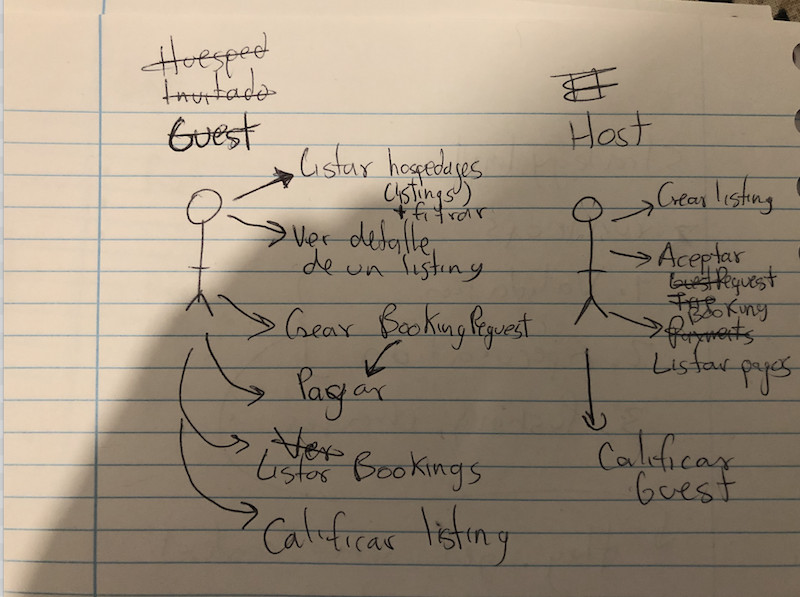 Huesped
Invitado
Guest
Listar hospedages
(listings)
+ filtrar
Ver detalle
de un listing
Crear BookingRequest
Pagar
Ver
Listar Bookings
Calificar listing
Host
Crear listing
Aceptar
Guest Request
Booking
Payments
Listar pagos
Calificar
Guest